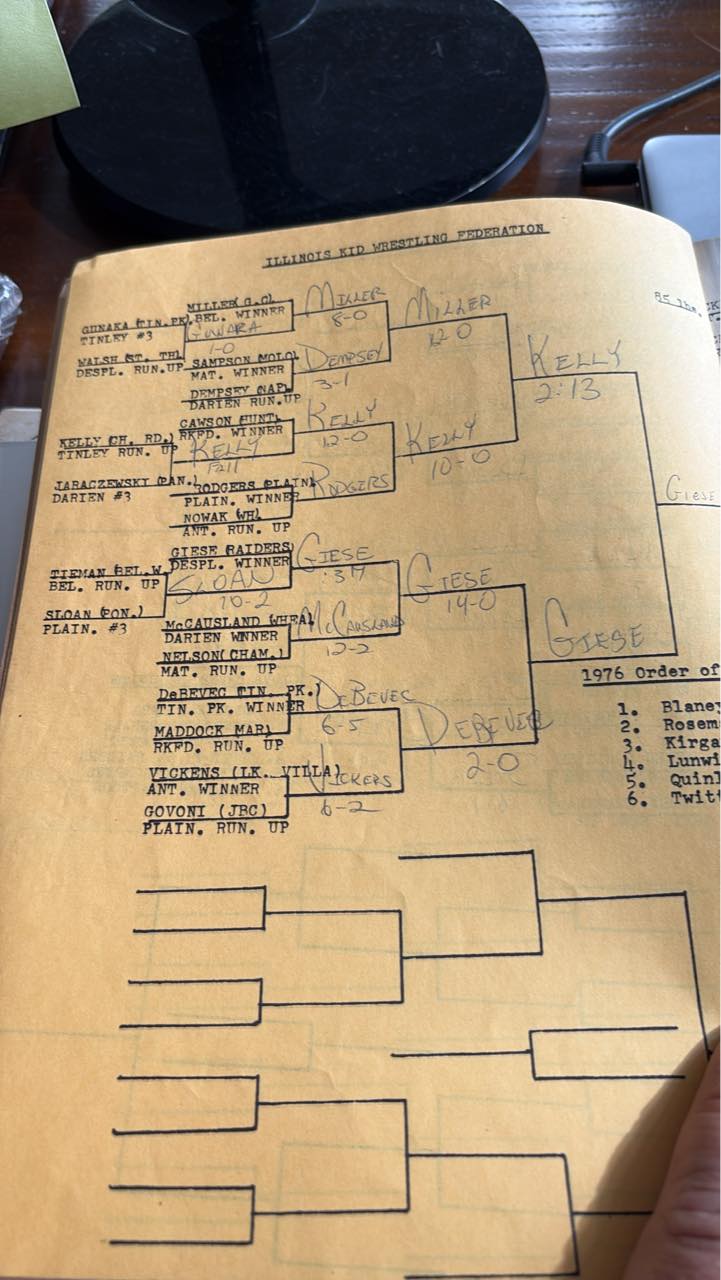 ILLINOIS KID WRESTLING FEDERATION
85 lbs.
MILLER(G.C)
BEL. WINNER
GUNAKA (TIN.PK)
TINLEY #3
GUNARA
1-0
WALSH (ST. TH)
DESPL. RUN.UP
MILLER
8-0
SAMPSON (MOLO)
MAT. WINNER
DEMPSEY (NAP)
DARIEN RUN.UP
DEMPSEY
3-1
MILLER
12-0
CAWSON (HUNT.
RKFD. WINNER
KELLY (CH. RD.)
TINLEY RUN. UP
KELLY
JARACZEWSKI (PAN.)
DARIEN #3
KELLY
12-0
RODGERS (PLAIN)
PLAIN. WINNER
NOWAK (WH)
ANT. RUN. UP
RODGERS
KELLY
10-0
KELLY
2:13
GIESE (RAIDERS)
DESPL. WINNER
TIEMAN (BEL.W.
BEL. RUN. UP
SLOAN
10-2
SLOAN (PON.)
PLAIN. #3
GIESE
McCAUSLAND (WHEA)
DARIEN WNNER
NELSON(CHAM.)
MAT. RUN. UP
McCAUSLAND
12-2
GIESE
14-0
DeBEVEC (TIN. PK.)
TIN. PK. WINNER
MADDOCK (MAR)
RKFD. RUN. UP
DEBEVEC
6-5
VICKENS (LK. VILLA)
ANT. WINNER
GOVONI (JBC)
PLAIN. RUN. UP
VICKERS
6-2
DEBEVEC
2-0
GIESE
GIESE
1976 Order of
1. Blaney
2. Rosem
3. Kirga
4. Lunwi
5. Quinl
6. Twitt